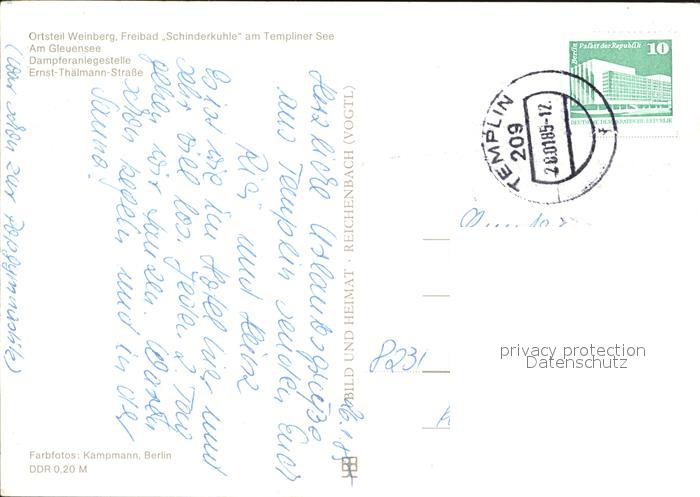 Ortsteil Weinberg, Freibad „Schinderkuhle" am Templiner See
Am Gleuensee
Dampferanlegestelle
Ernst-Thälmann-Straße
Berlin Palast der Republik
10
DEUTSCHE DEMOKRATISCHE REPUBLIK
TEMPLIN
209
28.01.85-12
Herzliche Urlaubsgrüße
aus Templin senden Euch
und Heinz
Es ist wie im Hotel hier und
sehr viel los. Jeden 2. Tag
gehen wir tanzen. Waren
schon kegeln und in der
Sauna!
(war schon zur
BILD UND HEIMAT · REICHENBACH (VOGTL)
8231
privacy protection
Datenschutz
Farbfotos: Kampmann, Berlin
DDR 0,20 M